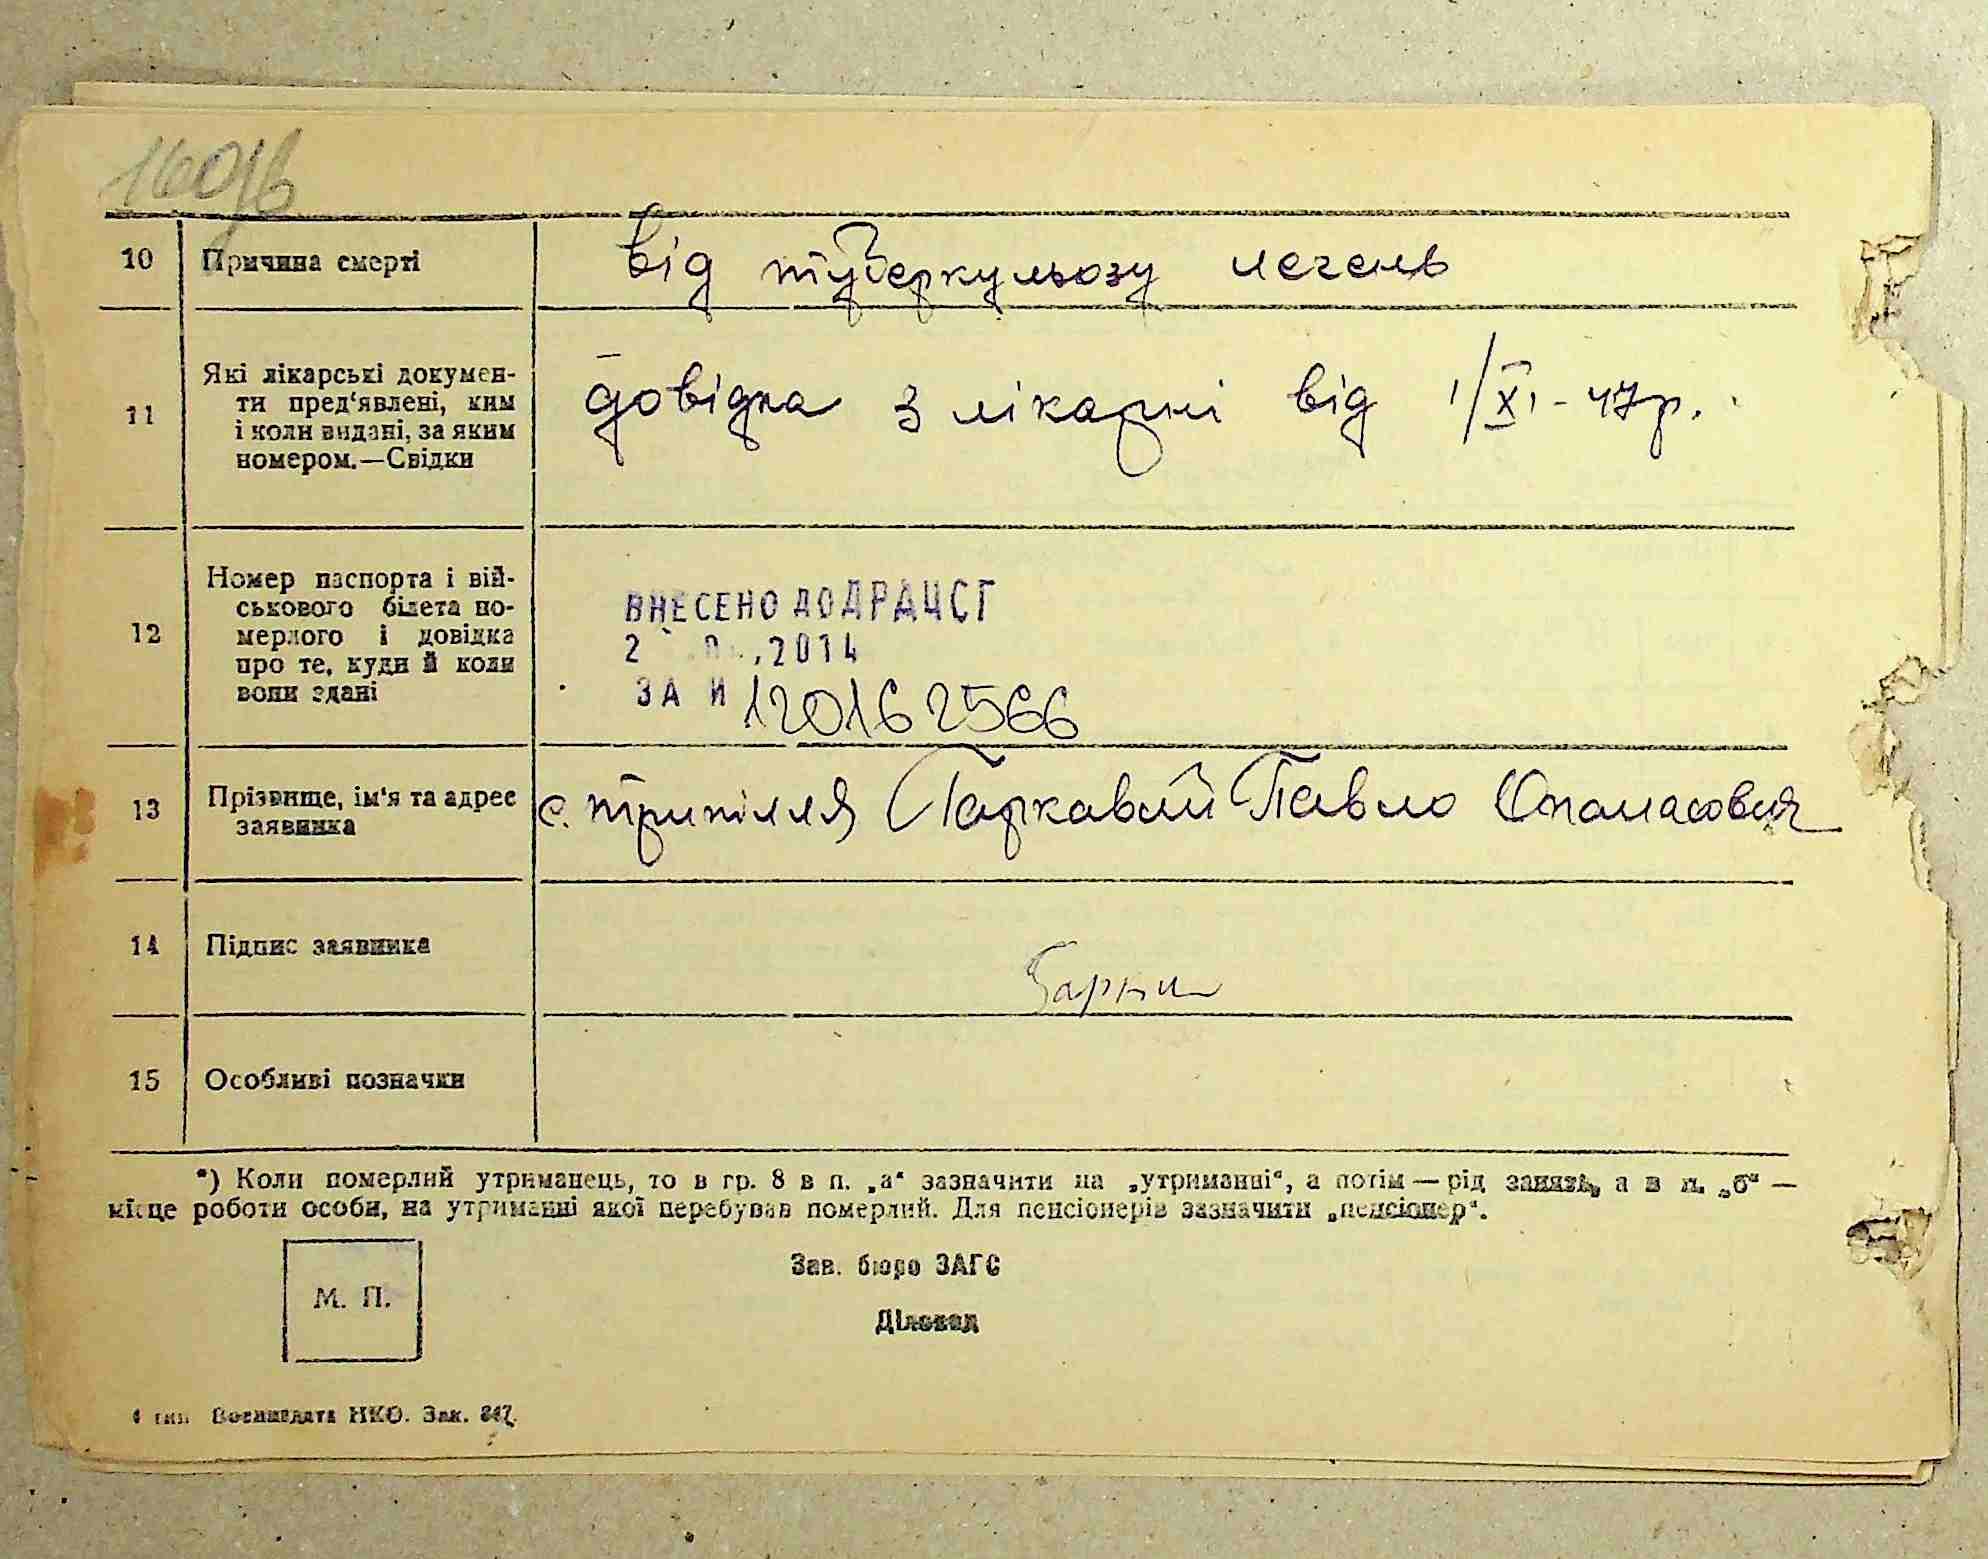 160зв
10 Причина смерті від туберкульозу легень
11 Які лікарські докумен-
ти пред'явлені, ким
і коли видані, за яким
номером.—Свідки
довідка з лікарні від 1/XI-47р.
12 Номер паспорта і вій-
ськового білета по-
мерлого і довідка
про те, куди й коли
вони здані
ВНЕСЕНО ДО ДРАЦСГ
2014
ЗА И 120162566
13 Прізвище, ім'я та адрес
заявника
с. Трипілля Гаркавий Павло Опанасович
14 Підпис заявника
15 Особливі позначки
*) Коли померлий утриманець, то в гр. 8 в п. „а" зазначити на „утриманні", а потім — рід занять, а в п. „б" —
місце роботи особи, на утриманні якої перебував померлий. Для пенсіонерів зазначити „пенсіонер".
М. П.
Зав. бюро ЗАГС
Діловод
4 тип Воениздата НКО. Зак. 847.